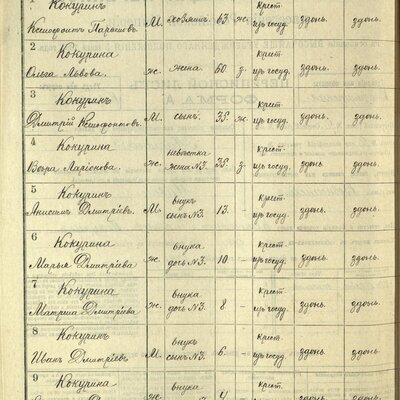 1
Кокуринъ крест.
Ксенофонтъ Парѳеновъ М. хозяинъ 63. ж. изъ госуд. здѣсь. здѣсь.
2
Кокурина крест.
Ольга Львова ж. жена 60 з. изъ госуд. здѣсь. здѣсь.
3
Кокуринъ крест.
Дмитрій Ксенофонтовъ М. сынъ. 35. ж. изъ госуд. здѣсь. здѣсь.
4
Кокурина невѣстка крест.
Вѣра Ларіонова. ж. жена №3. 35. з. изъ госуд. здѣсь. здѣсь.
5
Кокуринъ внукъ крест.
Анисимъ Дмитріевъ М. сынъ №3. 13. – изъ госуд. здѣсь. здѣсь.
6
Кокурина внука крест.
Марья Дмитріева ж. дочь №3. 10 – изъ госуд. здѣсь. здѣсь.
7
Кокурина внука крест.
Дмитріева ж. дочь №3. 8 – изъ госуд. здѣсь. здѣсь.
8
Кокуринъ внукъ крест.
Иванъ Дмитріевъ М. сынъ №3. 6. – изъ госуд. здѣсь. здѣсь.
9
Кокурина внука крест.